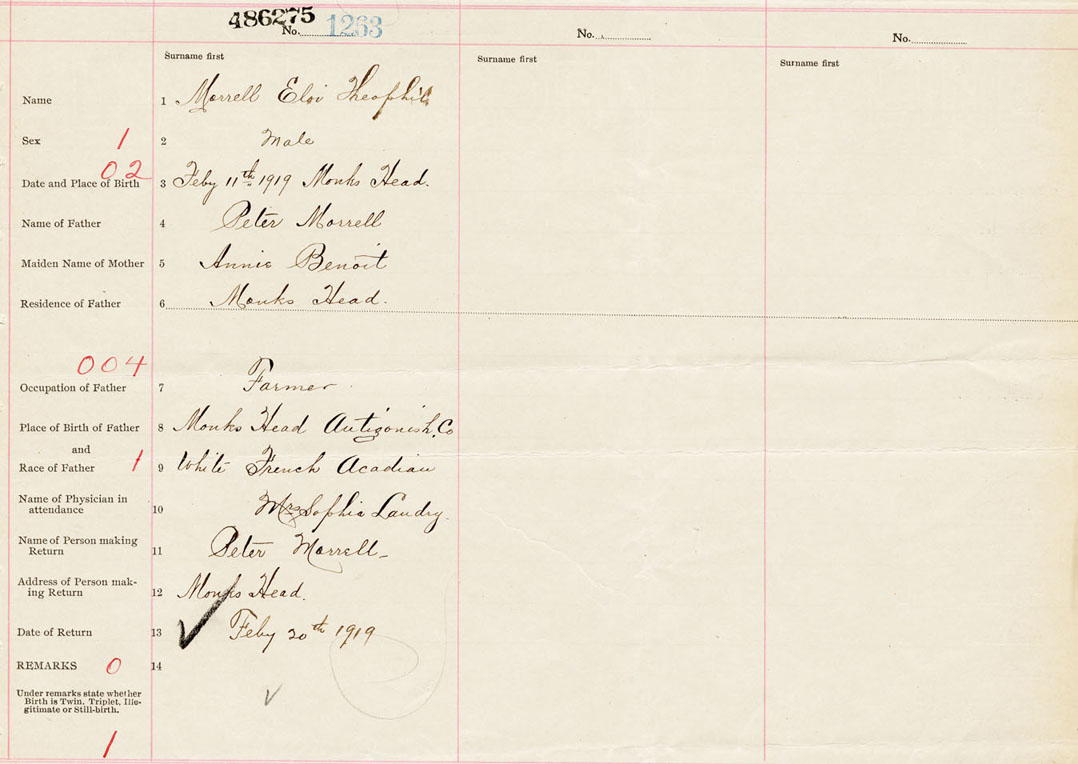 486275
No. 1263
No.
No.
Surname first
Surname first
Surname first
Name 1 Morrell Eloi Theophile
Sex 1 2 Male
02
Date and Place of Birth 3 Feby 11th 1919 Monks Head.
Name of Father 4 Peter Morrell
Maiden Name of Mother 5 Annie Benoit
Residence of Father 6 Monks Head.
004
Occupation of Father 7 Farmer
Place of Birth of Father 8 Monks Head Antigonish, Co
and
Race of Father 1 9 White French Acadian
Name of Physician in
attendance 10 Mrs Sophia Landry.
Name of Person making
Return 11 Peter Morrell
Address of Person mak-
ing Return 12 Monks Head.
Date of Return 13 Feby 20th 1919
REMARKS 0 14
Under remarks state whether
Birth is Twin, Triplet, Ille-
gitimate or Still-birth.
1